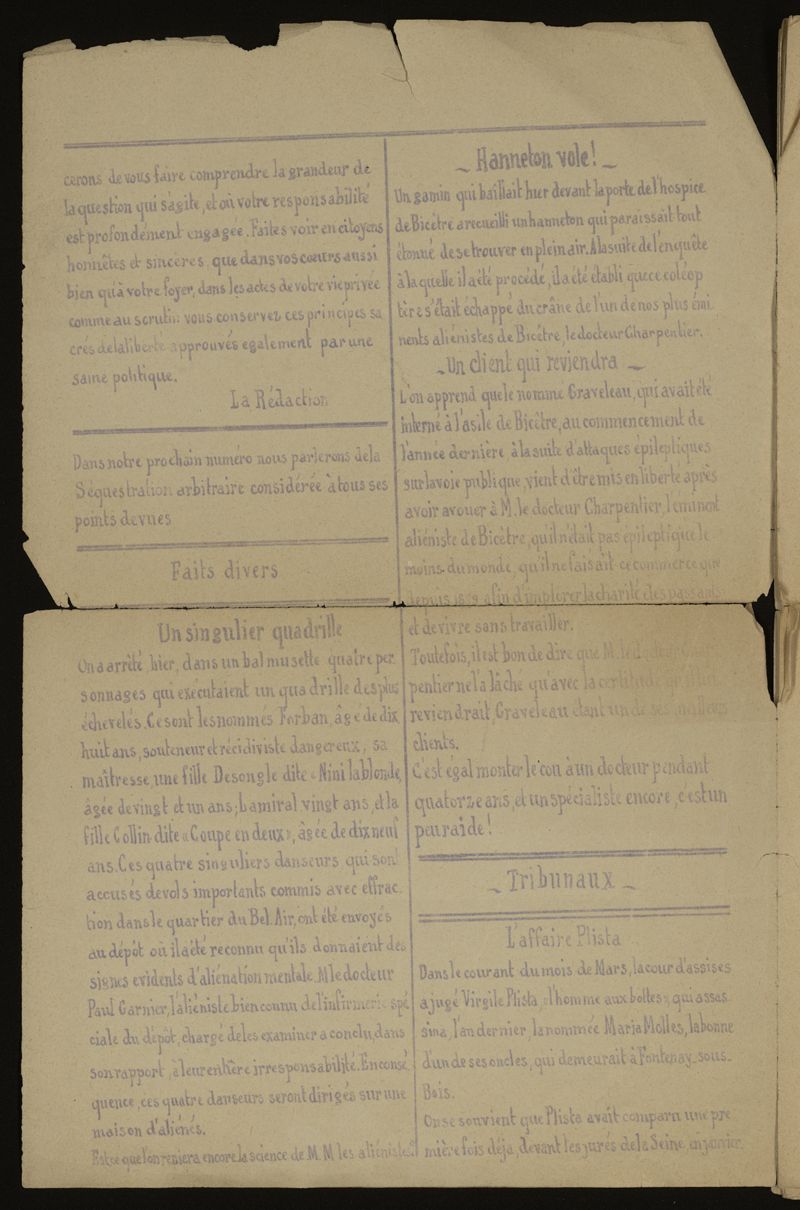 cerons de vous faire comprendre la grandeur de
la question qui s'agite, et où votre responsabilité
est profondément engagée. Faites voir en citoyens
honnêtes et sincères, que dans vos cœurs aussi
bien qu'à votre foyer, dans les actes de votre vie privée
comme au scrutin vous conservez ces principes sa
crés de la liberté approuvés également par une
saine politique.
La Rédaction
Dans notre prochain numéro nous parlerons de la
Séquestration arbitraire considérée à tous ses
points de vues
Faits divers
Un singulier quadrille
On a arrêté, hier, dans un bal musette quatre per
sonnages qui exécutaient un quadrille des plus
échevelés. Ce sont les nommés Forban, âgé de dix
huit ans, souteneur et récidiviste dangereux, sa
maîtresse, une fille Desongle dite « Nini la blonde,
âgée de vingt et un ans; Lamiral vingt ans, et la
fille Collin dite « Coupe en deux », âgée de dix neuf
ans. Ces quatre singuliers danseurs qui sont
accusés de vols importants commis avec effrac
tion dans le quartier du Bel. Air, ont été envoyés
au dépôt où il a été reconnu qu'ils donnaient des
signes evidents d'aliénation mentale. M le docteur
Paul Garnier, l'aliéniste bien connu de l'infirmerie spé
ciale du dépôt, chargé de les examiner a conclu, dans
son rapport, à leur entière irresponsabilité. En consé
quence, ces quatre danseurs seront dirigés sur une
maison d'aliénés.
Est ce que l'on reniera encore la science de M. M les aliénistes?
_ Hanneton vole! _
Un gamin qui baîllait hier devant la porte de l'hospice
de Bicêtre a recueilli un hanneton qui paraissait tout
étonné de se trouver en plein air. A la suite de l'enquête
à laquelle il a été procédé, il a été établi que ce coléop
tère s'était échappé du crâne de l'un de nos plus émi
nents aliénistes de Bicêtre, le docteur Charpentier.
_ Un client qui reviendra _
L'on apprend que le nommé Graveleau, qui avait été
interné à l'asile de Bicêtre, au commencement de
l'année dernière à la suite d'attaques épileptiques
sur la voie publique, vient d'être mis en liberté après
avoir avouer à M. le docteur Charpentier, l'éminent
aliéniste de Bicêtre, qu'il n'était pas épileptique le
moins du monde, qu'il ne faisait ce commerce que
depuis afin d'implorer la charité des passants
et de vivre sans travailler.
Toutefois, il est bon de dire que M. le docteur Char
pentier ne l'a lâché qu'avec la certitude qu'il lui
reviendrait, Graveleau étant un de ses meilleurs
clients.
C'est égal monter le cou à un docteur pendant
quatorze ans, et un spécialiste encore, c'est un
peu raide!
_ Tribunaux _
L'affaire Plista
Dans le courant du mois de Mars, la cour d'assises
a jugé Virgile Plista, « l'homme aux bottes », qui assas
sina, l'an dernier, la nommée Maria Molles, la bonne
d'un de ses oncles, qui demeurait à Fontenay_sous_
Bois.
On se souvient que Plista avait comparu une pre
mière fois déjà, devant les jurés de la Seine, en janvier